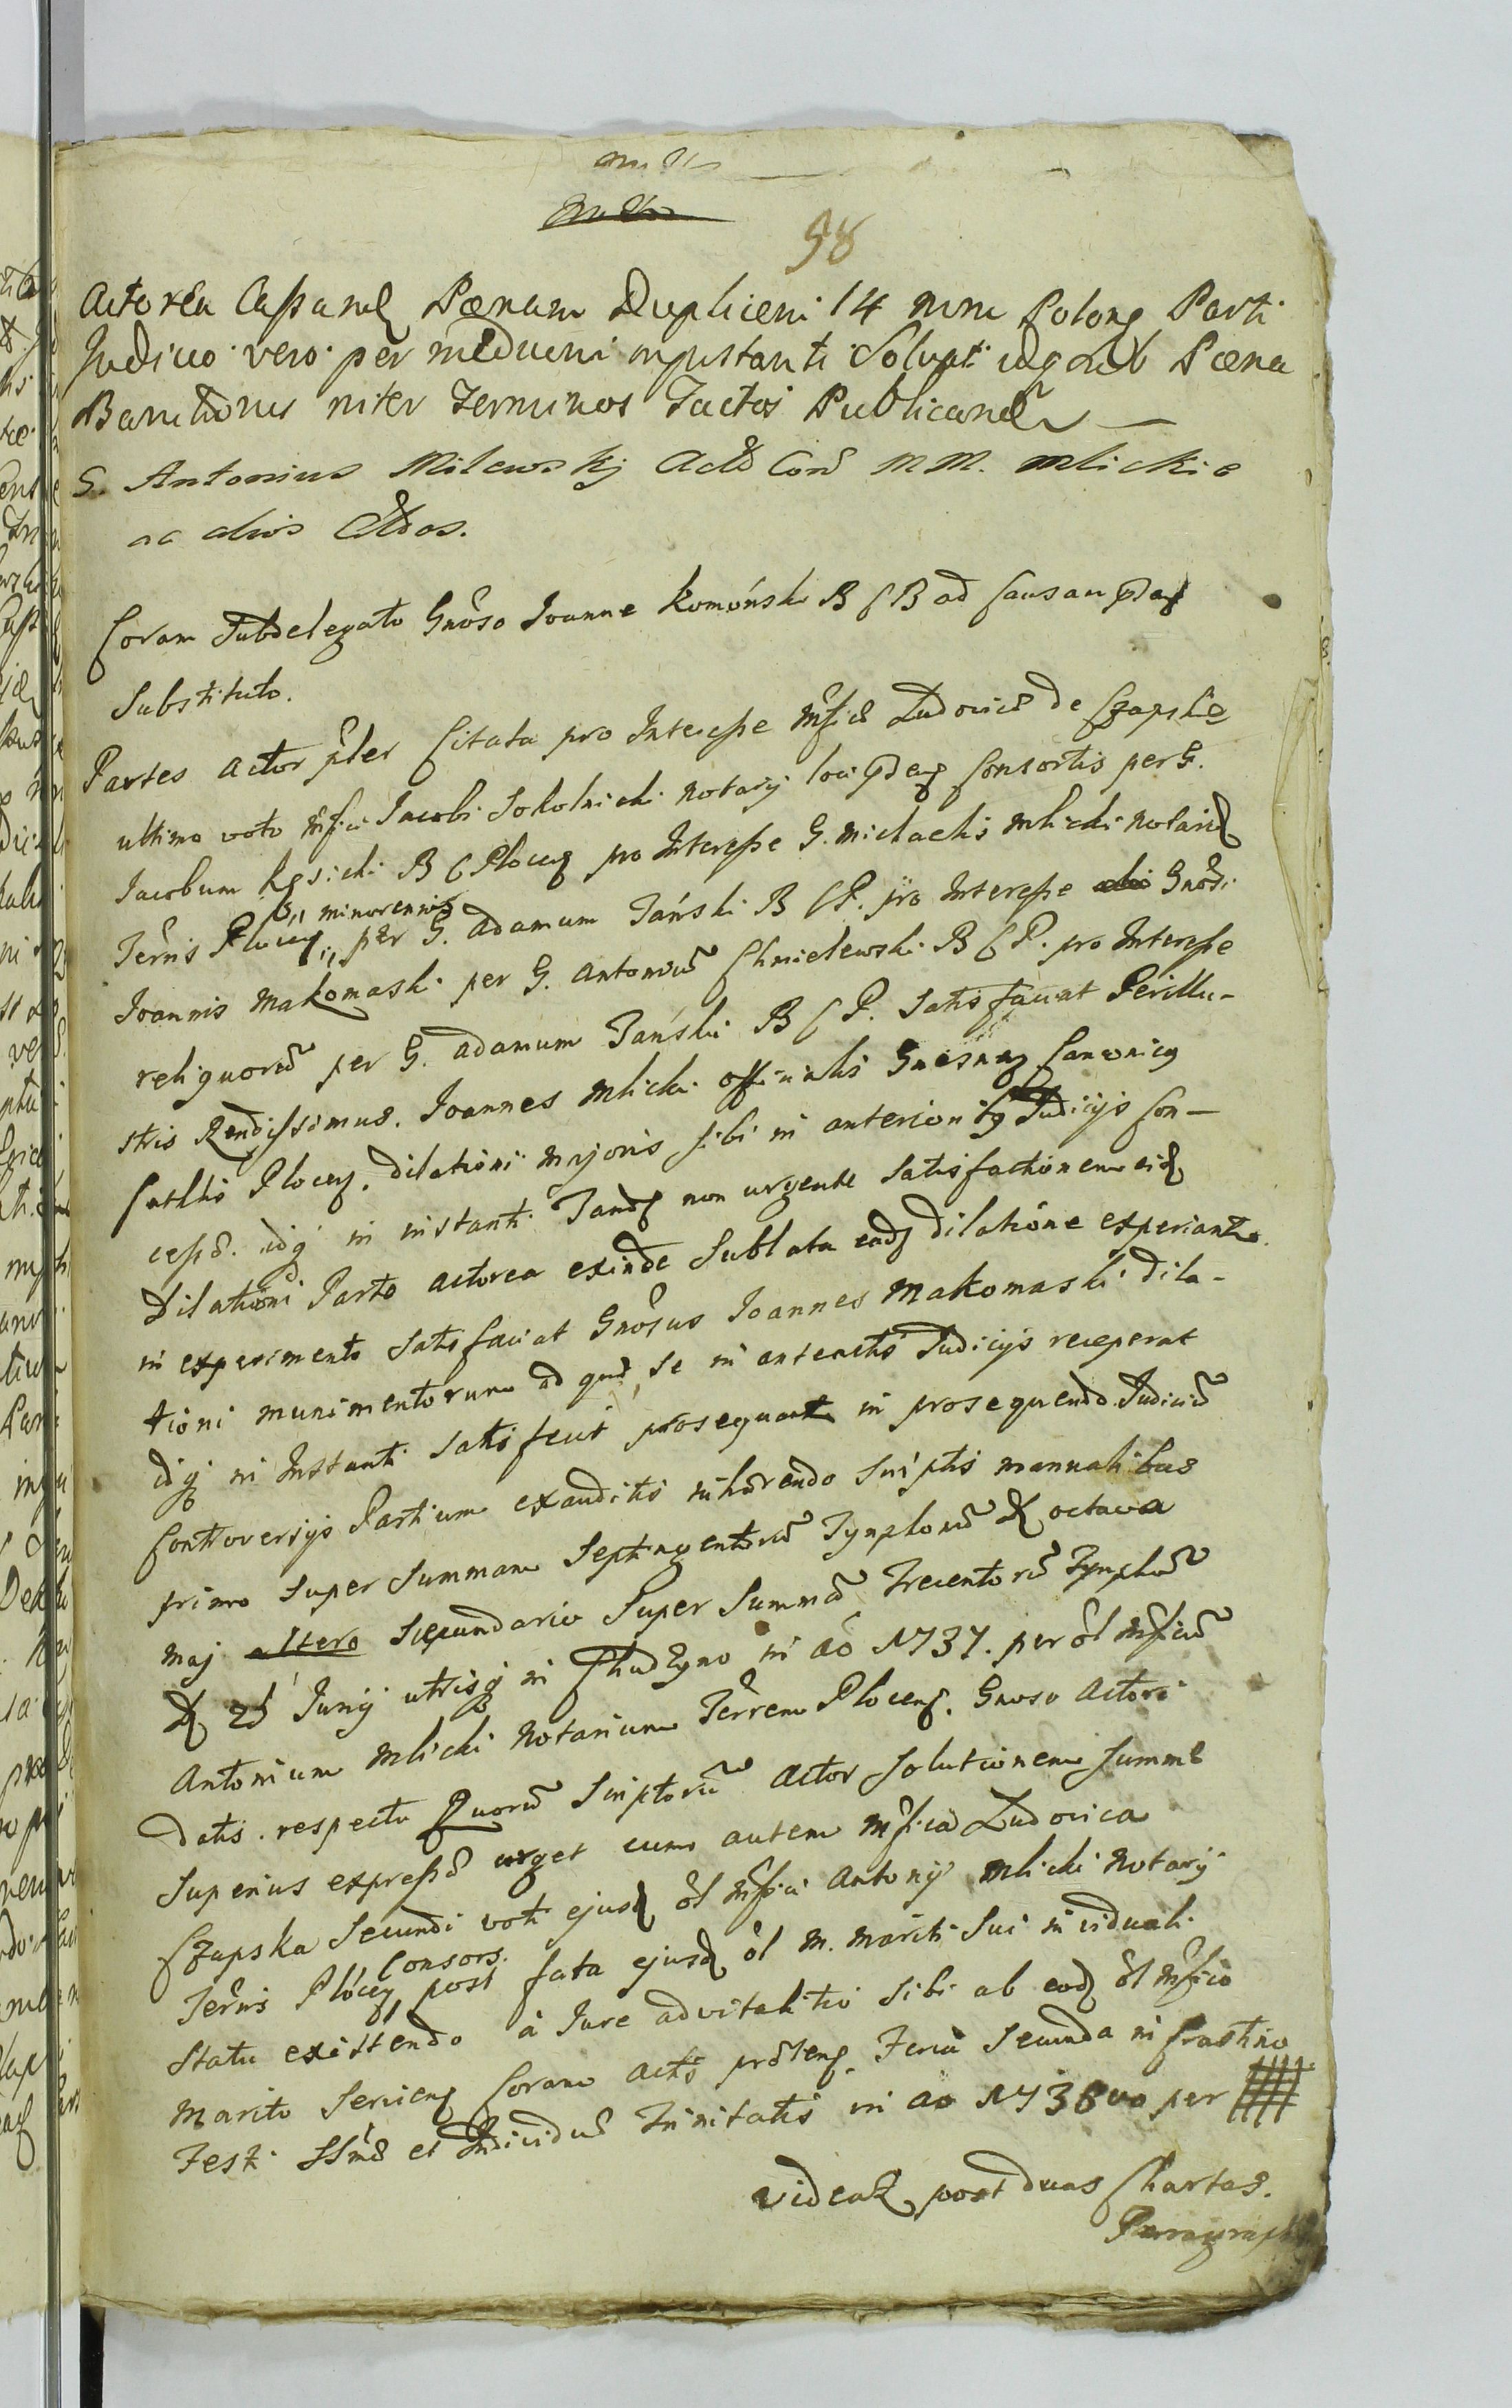 98
Actorea Cassand Poenam Duplicem 14 mrm Polong Parti
Judicio vero per mediam in instanti Solvat idq sub Poena
Bannitionis inter Terminos Tactos Publicand
G. Antonius Milewskj Actd Cond MM. Mlickie
ac alios Cttdos.
Coram Subdelegato Gnôso Joanne Komoński B C B ad Causam
Substituto.
Partes actor pster Citata pro Interesse Mficæ Ludovicæ de Czapskie
ultimo voto Mfici Jacobi Sokolnicki Notarij loci consortis per G.
Jacobum Kęsicki B C Plocen pro Interesse G. Michaelis Mlicki Notarid
Terrris Plocen „ minorennis „ per G. Adamum Tański B C P. pro Interesse Gnosi
Joannis Makomaski per G. Antoniũ Chmielewski B C P. pro Interesse
reliquorũ per G. Adamum Tański B C P. Satisfaciat Perillu-
stris Rendissimus. Joannes Mlicki officialis Gnesnen Canonicq
Cathlis Plocen. Dilationi majoris sibi in anterioribq Judicijs con-
cessæ. idq in instanti Tand non urgente Satisfactionem eid
Dilationi Parte actorea exinde Sublata eadq Dilatione experiant
in experimento Satisfaciat Gnôsus Joannes Makomaski dila-
tioni munimentorum ad quæ se in anteactis Judicijs receperat
idq in Instanti satisfecit prosequant in prosequendo Judiciũ
Controversijs Partium exauditis inhærendo Sciptis mannalibus
primo super summam Septingentorũ Tymphorũ D octava
Maj altero secundario super Summã Trecentorũ Tymphorũ
D 25 Junij utrisq in Chudzyno in aô 1737. per ôl Mficũ
Antonium Mlicki Notarium Terrem Plocens. Gnoso actori
datis. respectu Quorũ Sciptorũ actor solutionem summæ
superius expressæ urget cum autem Mfica Ludovica
Czapska Secundi voti ejusd ôl Mfici Antonij Mlicki Notarij
Terrris Plocen Consors. post fata ejusd ôl M. mariti sui in viduali
Statu existendo a Jure advitalitio sibi ab eod ôl Mfico
Marito Servien Coram actis prsten. Feria Secunda in Crastino
Festi SSmæ et Individuæ Trinitatis in ao 1736vo per
videat post duas Chartas.
Parragraph